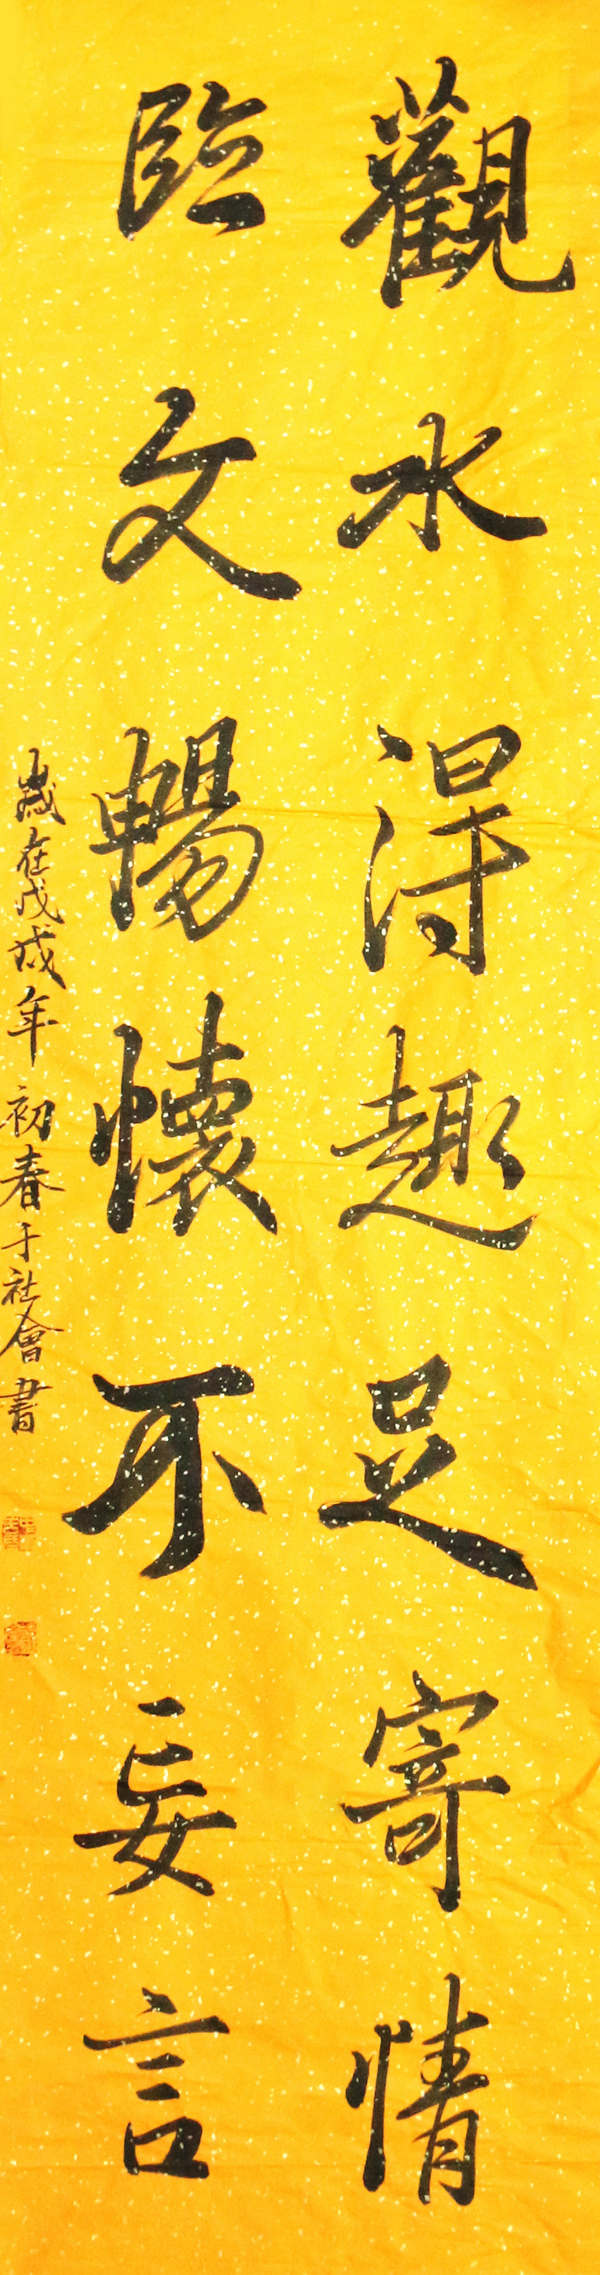 觀水得趣足寄情
臨文暢懷不妄言
歲在戊戌年初春于社會書